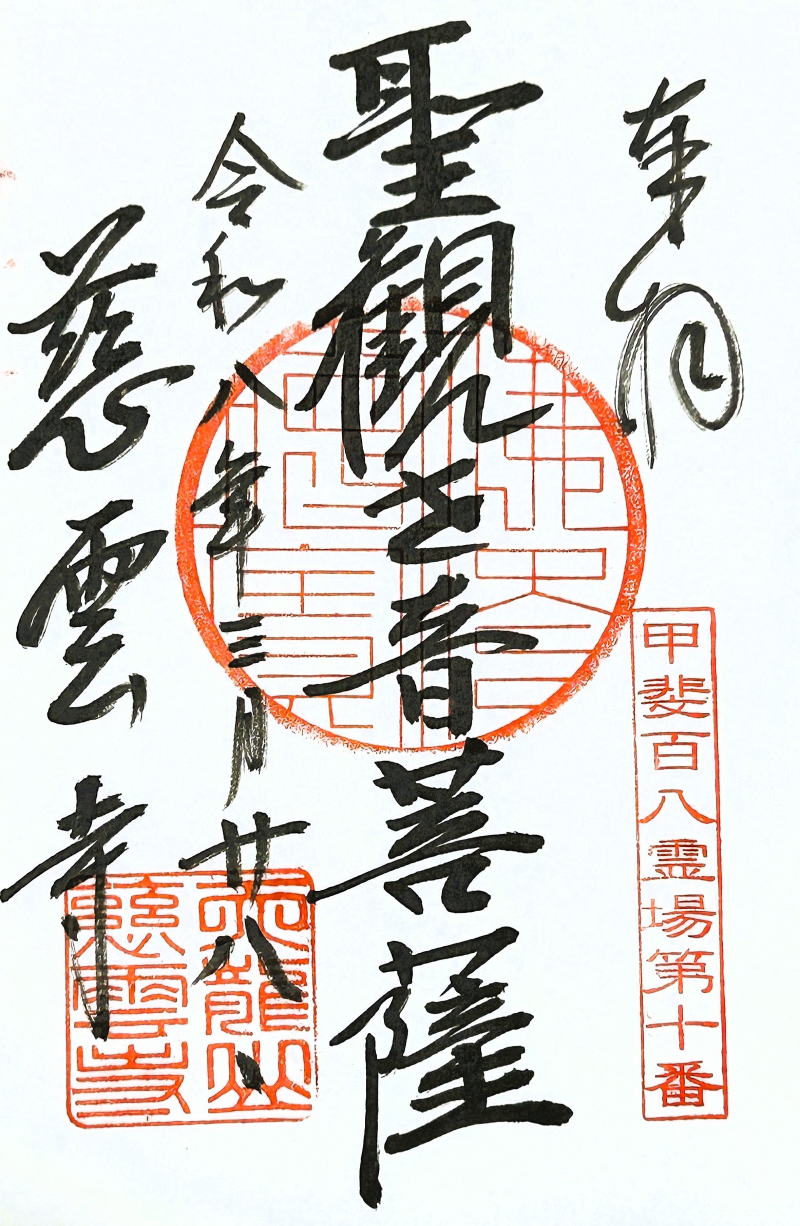 奉拝
甲斐百八霊場第十番
聖観世音菩薩
令和八年三月廿八日
慈雲寺
天龍山
慈雲寺